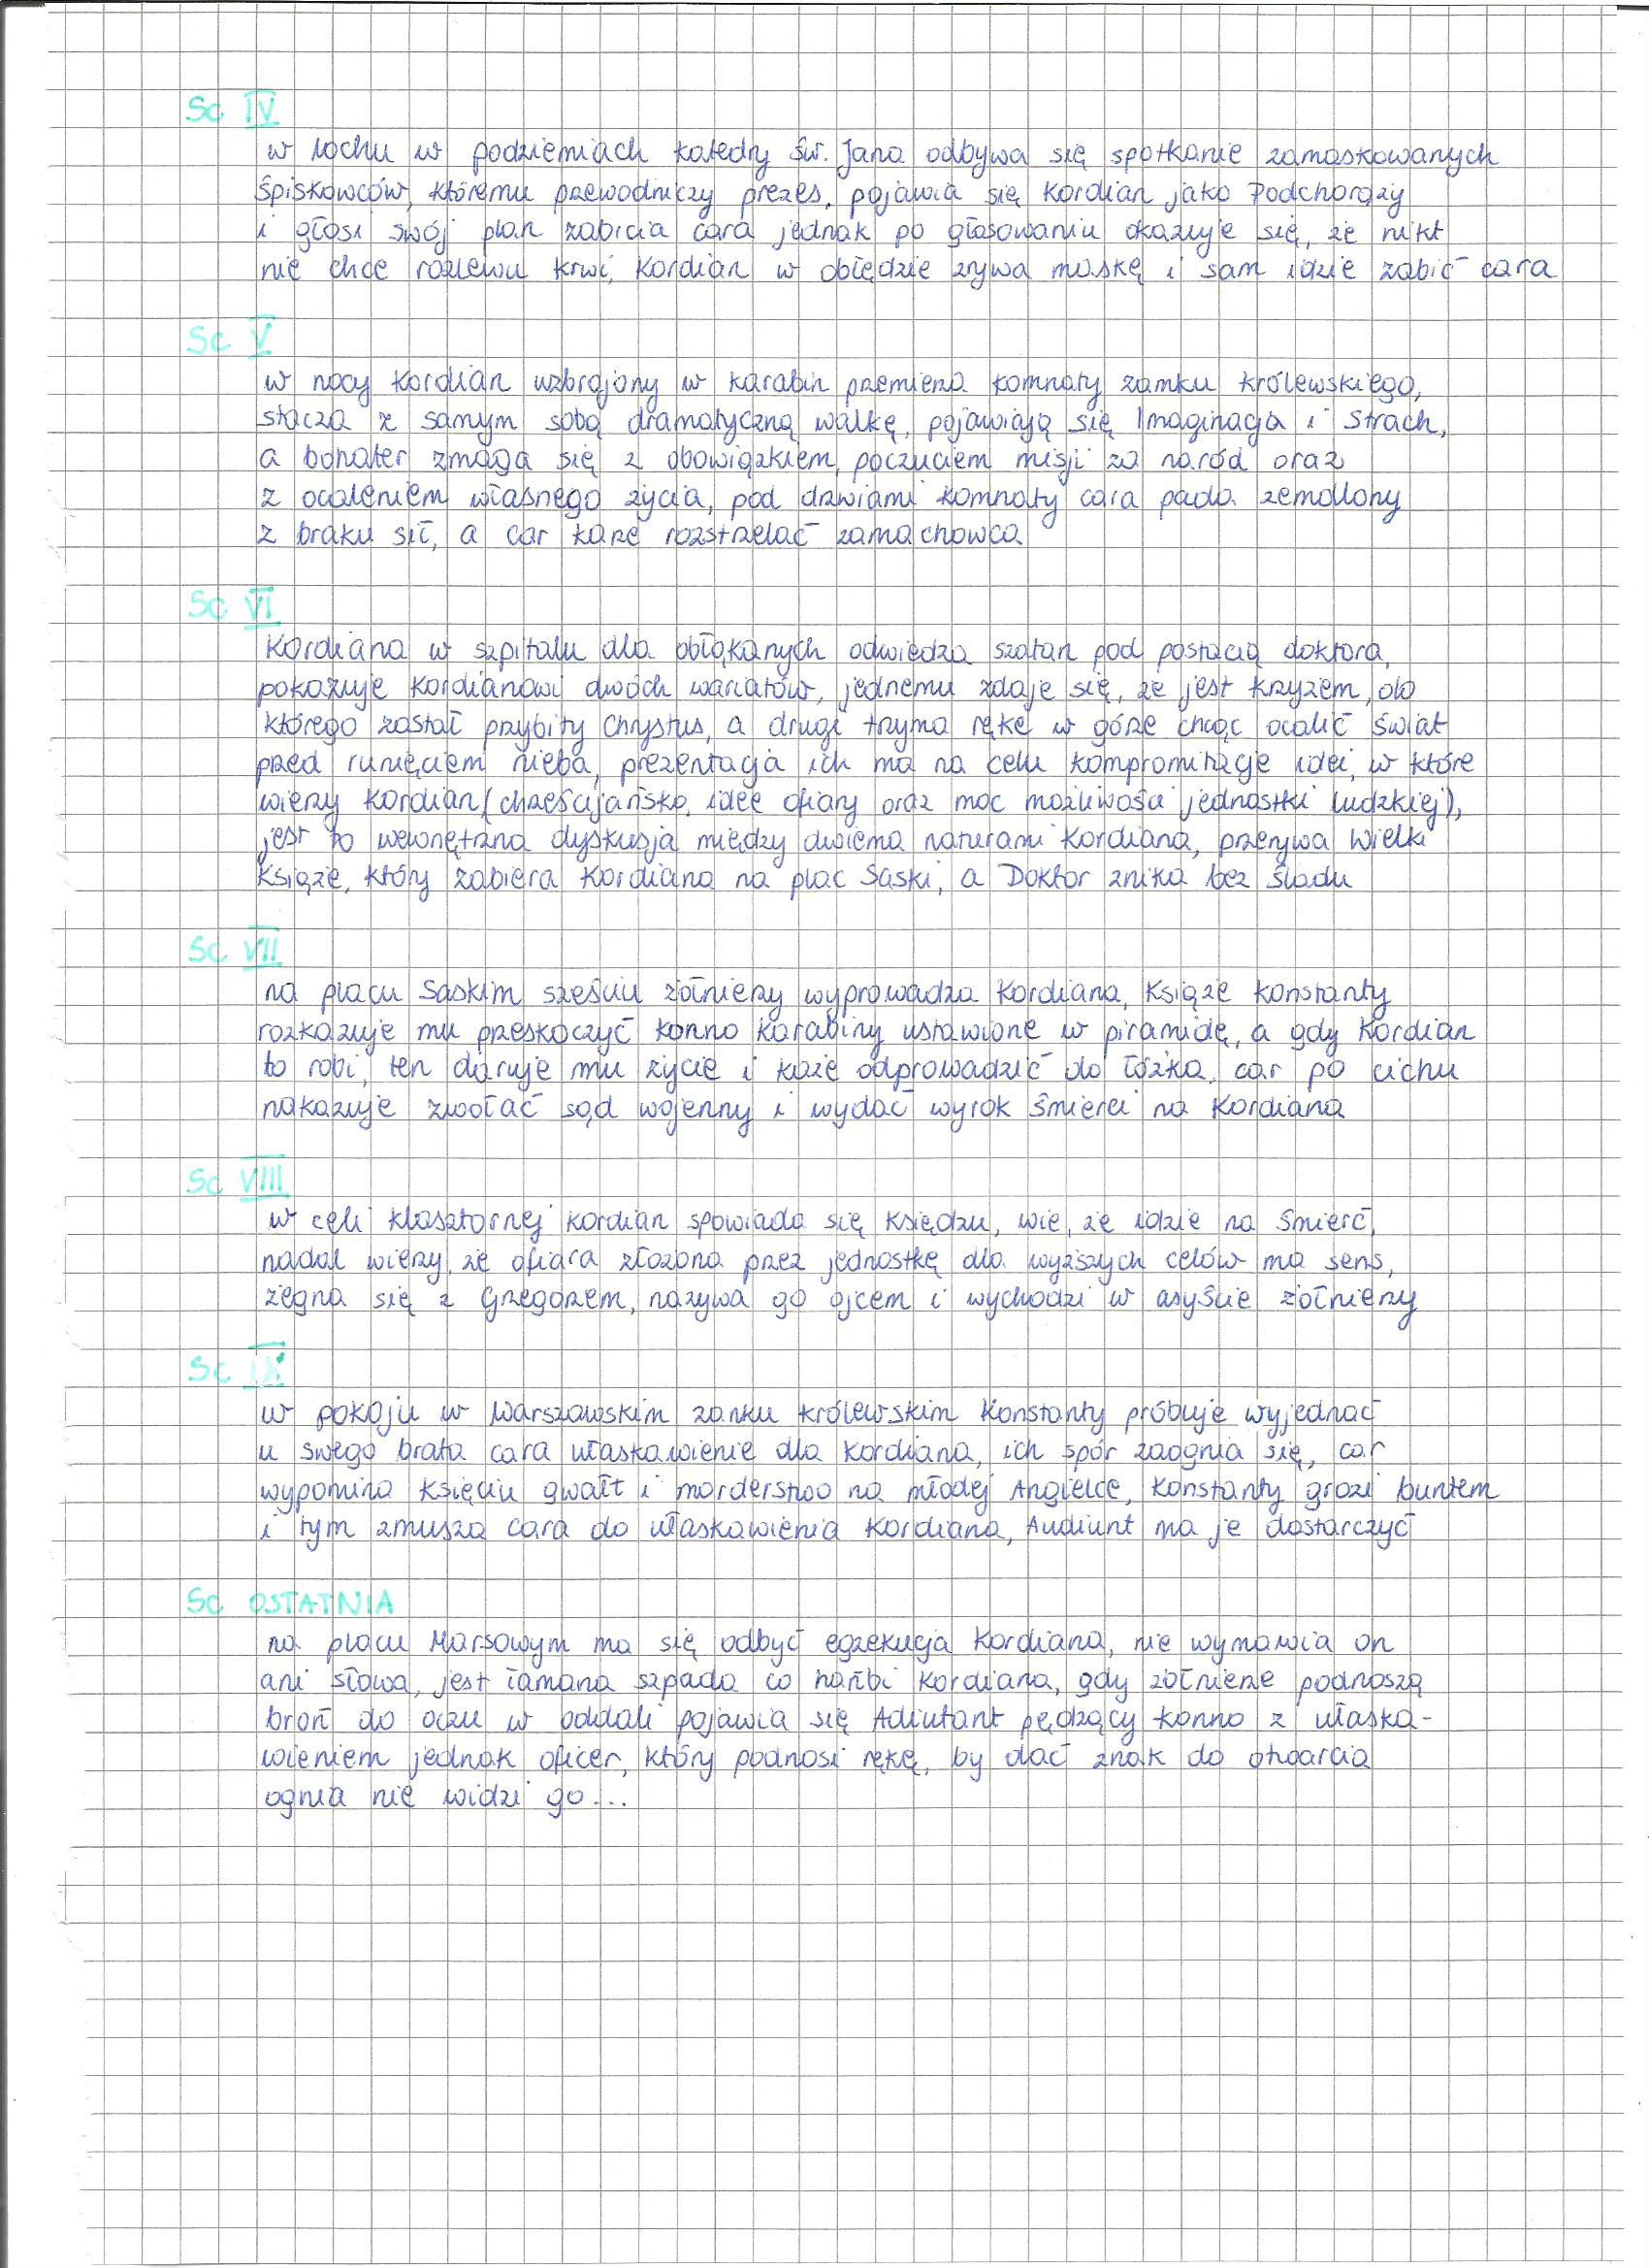 Sc IV
w lochu w podziemiach katedry św. Jana odbywa się spotkanie zamaskowanych
spiskowców, któremu przewodniczy prezes, pojawia się Kordian jako Podchorąży
i głosi swój plan zabicia cara jednak po głosowaniu okazuje się, że nikt
nie chce rozlewu krwi, Kordian w obłędzie zrywa maskę i sam idzie zabić cara
Sc V
w nocy Kordian uzbrojony w karabin przemierza komnaty zamku królewskiego,
stacza z samym sobą dramatyczną walkę, pojawiają się Imaginacja i Strach,
a bohater zmaga się z obowiązkiem, poczuciem misji za naród oraz
z ocaleniem własnego życia, pod drzwiami komnaty cara pada zemdlony
z braku sił, a car każe rozstrzelać zamachowca
Sc VI
Kordiana w szpitalu dla obłąkanych odwiedza szatan pod postacią doktora,
pokazuje Kordianowi dwóch wariatów, jednemu zdaje się, że jest krzyżem, do
którego został przybity Chrystus, a drugi trzyma rękę w górze chcąc ocalić świat
przed runięciem nieba, prezentacja ich ma na celu kompromitację idei, w które
wierzy Kordian (chrześcijańską ideę ofiary oraz moc możliwości jednostki ludzkiej),
jest to wewnętrzna dyskusja między dwiema naturami Kordiana, przerywa Wielki
Książe, który zabiera Kordiana na plac Saski, a Doktor znika bez śladu
Sc VII
na placu Saskim sześciu żołnierzy wyprowadza Kordiana, Książe Konstanty
rozkazuje mu przeskoczyć konno karabiny ustawione w piramidę, a gdy Kordian
to robi, ten daruje mu życie i każe odprowadzić do łóżka, car po cichu
nakazuje zwołać sąd wojenny i wydać wyrok śmierci na Kordiana
Sc VIII
w celi klasztornej Kordian spowiada się księdzu, wie, że idzie na śmierć,
nadal wierzy, że ofiara złożona przez jednostkę dla wyższych celów ma sens,
żegna się z Grzegorzem, nazywa go ojcem i wychodzi w asyście żołnierzy
Sc IX
w pokoju w Warszawskim zamku królewskim Konstanty próbuje wyjednać
u swego brata cara ułaskawienie dla Kordiana, ich spór zaognia się, car
wypomina Księciu gwałt i morderstwo na młodej Angielce, Konstanty grozi buntem
i tym zmusza cara do ułaskawienia Kordiana, Audiunt ma je dostarczyć
Sc OSTATNIA
na placu Marsowym ma się odbyć egzekucja Kordiana, nie wymawia on
ani słowa, jest łamana szpada co hańbi Kordiana, gdy żołnierze podnoszą
broń do oczu w oddali pojawia się Adiutant pędzący konno z ułaska-
wieniem jednak oficer, który podnosi rękę, by dać znak do otwarcia
ognia nie widzi go...